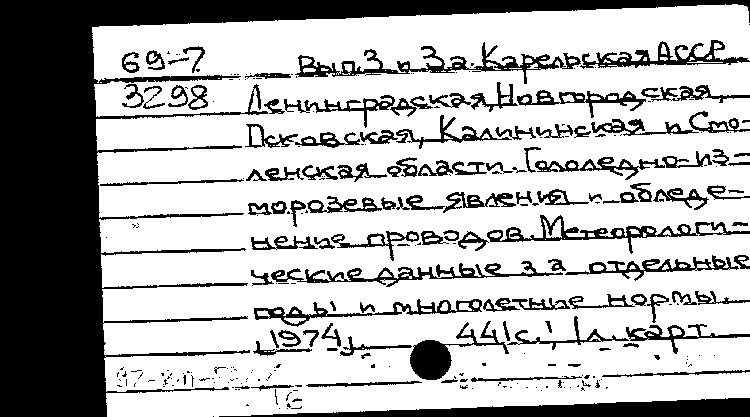 69-7 Вып.3 и 3а. Карельская АССР,
3298 Ленинградская, Новгородская,
Псковская, Калининская и Смо-
ленская области. Гололедно-из-
морозевые явления и обледе-
нение проводов. Метеорологи-
ческие данные за отдельные
годы и многолетние нормы.
1974. 441 с.! 1 л. карт.
16